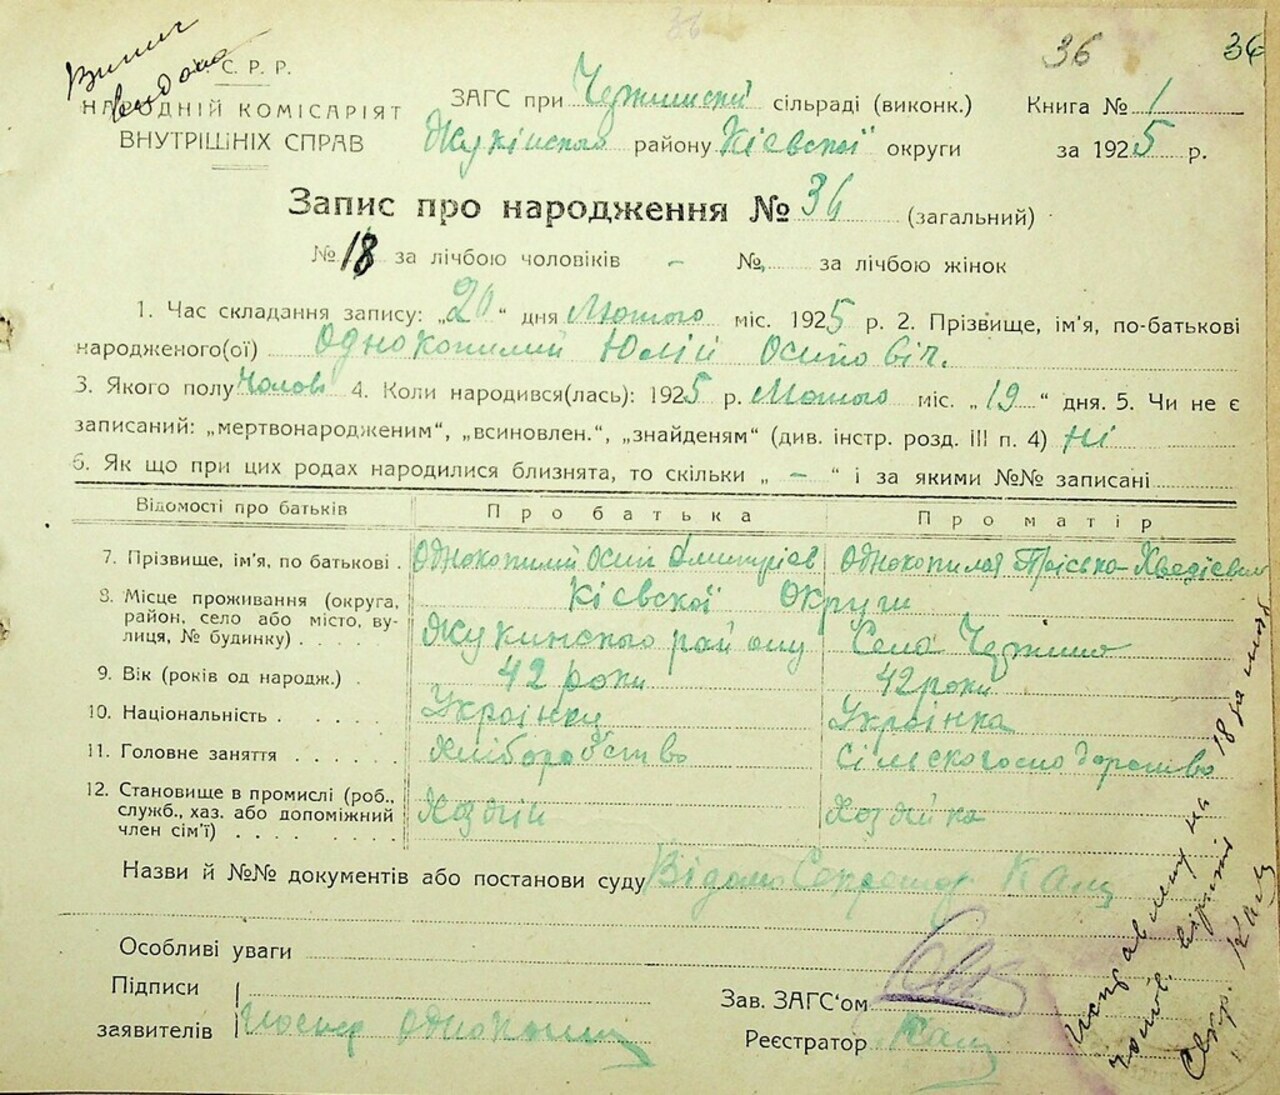 36 36
Випис
видано
С. Р. Р.
НАРОДНІЙ КОМІСАРІЯТ
ВНУТРІШНІХ СПРАВ
ЗАГС при сільраді (виконк.)
Жукінского району Кієвскої округи
Книга № 1
за 1925 р.
Запис про народження № 36 (загальний)
№ 18 за лічбою чоловіків - № за лічбою жінок
1. Час складання запису: „20“ дня Лютого міс. 1925 р. 2. Прізвище, ім'я, по-батькові
народженого(ої) Однокопилий Юлій Осипович.
3. Якого полу Чолов 4. Коли народився(лась): 1925 р. Лютого міс. „19“ дня. 5. Чи не є
записаний: „мертвонародженим“, „всиновлен.“, „знайденям“ (див. інстр. розд. III п. 4) Ні
6. Як що при цих родах народилися близнята, то скільки „ - “ і за якими №№ записані
Відомості про батьків Про батька Про матір
7. Прізвище, ім'я, по батькові . Однокопилий Осип Дмитріев Однокопилая Пріська
8. Місце проживання (округа, Кієвскої Округи
район, село або місто, ву-
лиця, № будинку) . . . . Жукинского району Села
9. Вік (років од народж.) . 42 роки 42 роки
10. Національність . . . . . Українец Украінка
11. Головне заняття . . . . . . Хліборобство Сільскогосподарство
12. Становище в промислі (роб.,
служб., хаз. або допоміжний Хозяін Хозяйка
член сім'ї) . . . . . . . .
Назви й №№ документів або постанови суду Відомо Секретар
Особливі уваги
Підписи
заявителів
Зав. ЗАГС'ом
Реєстратор
Исправлену на 18 за
чолов. вірити
Секр.